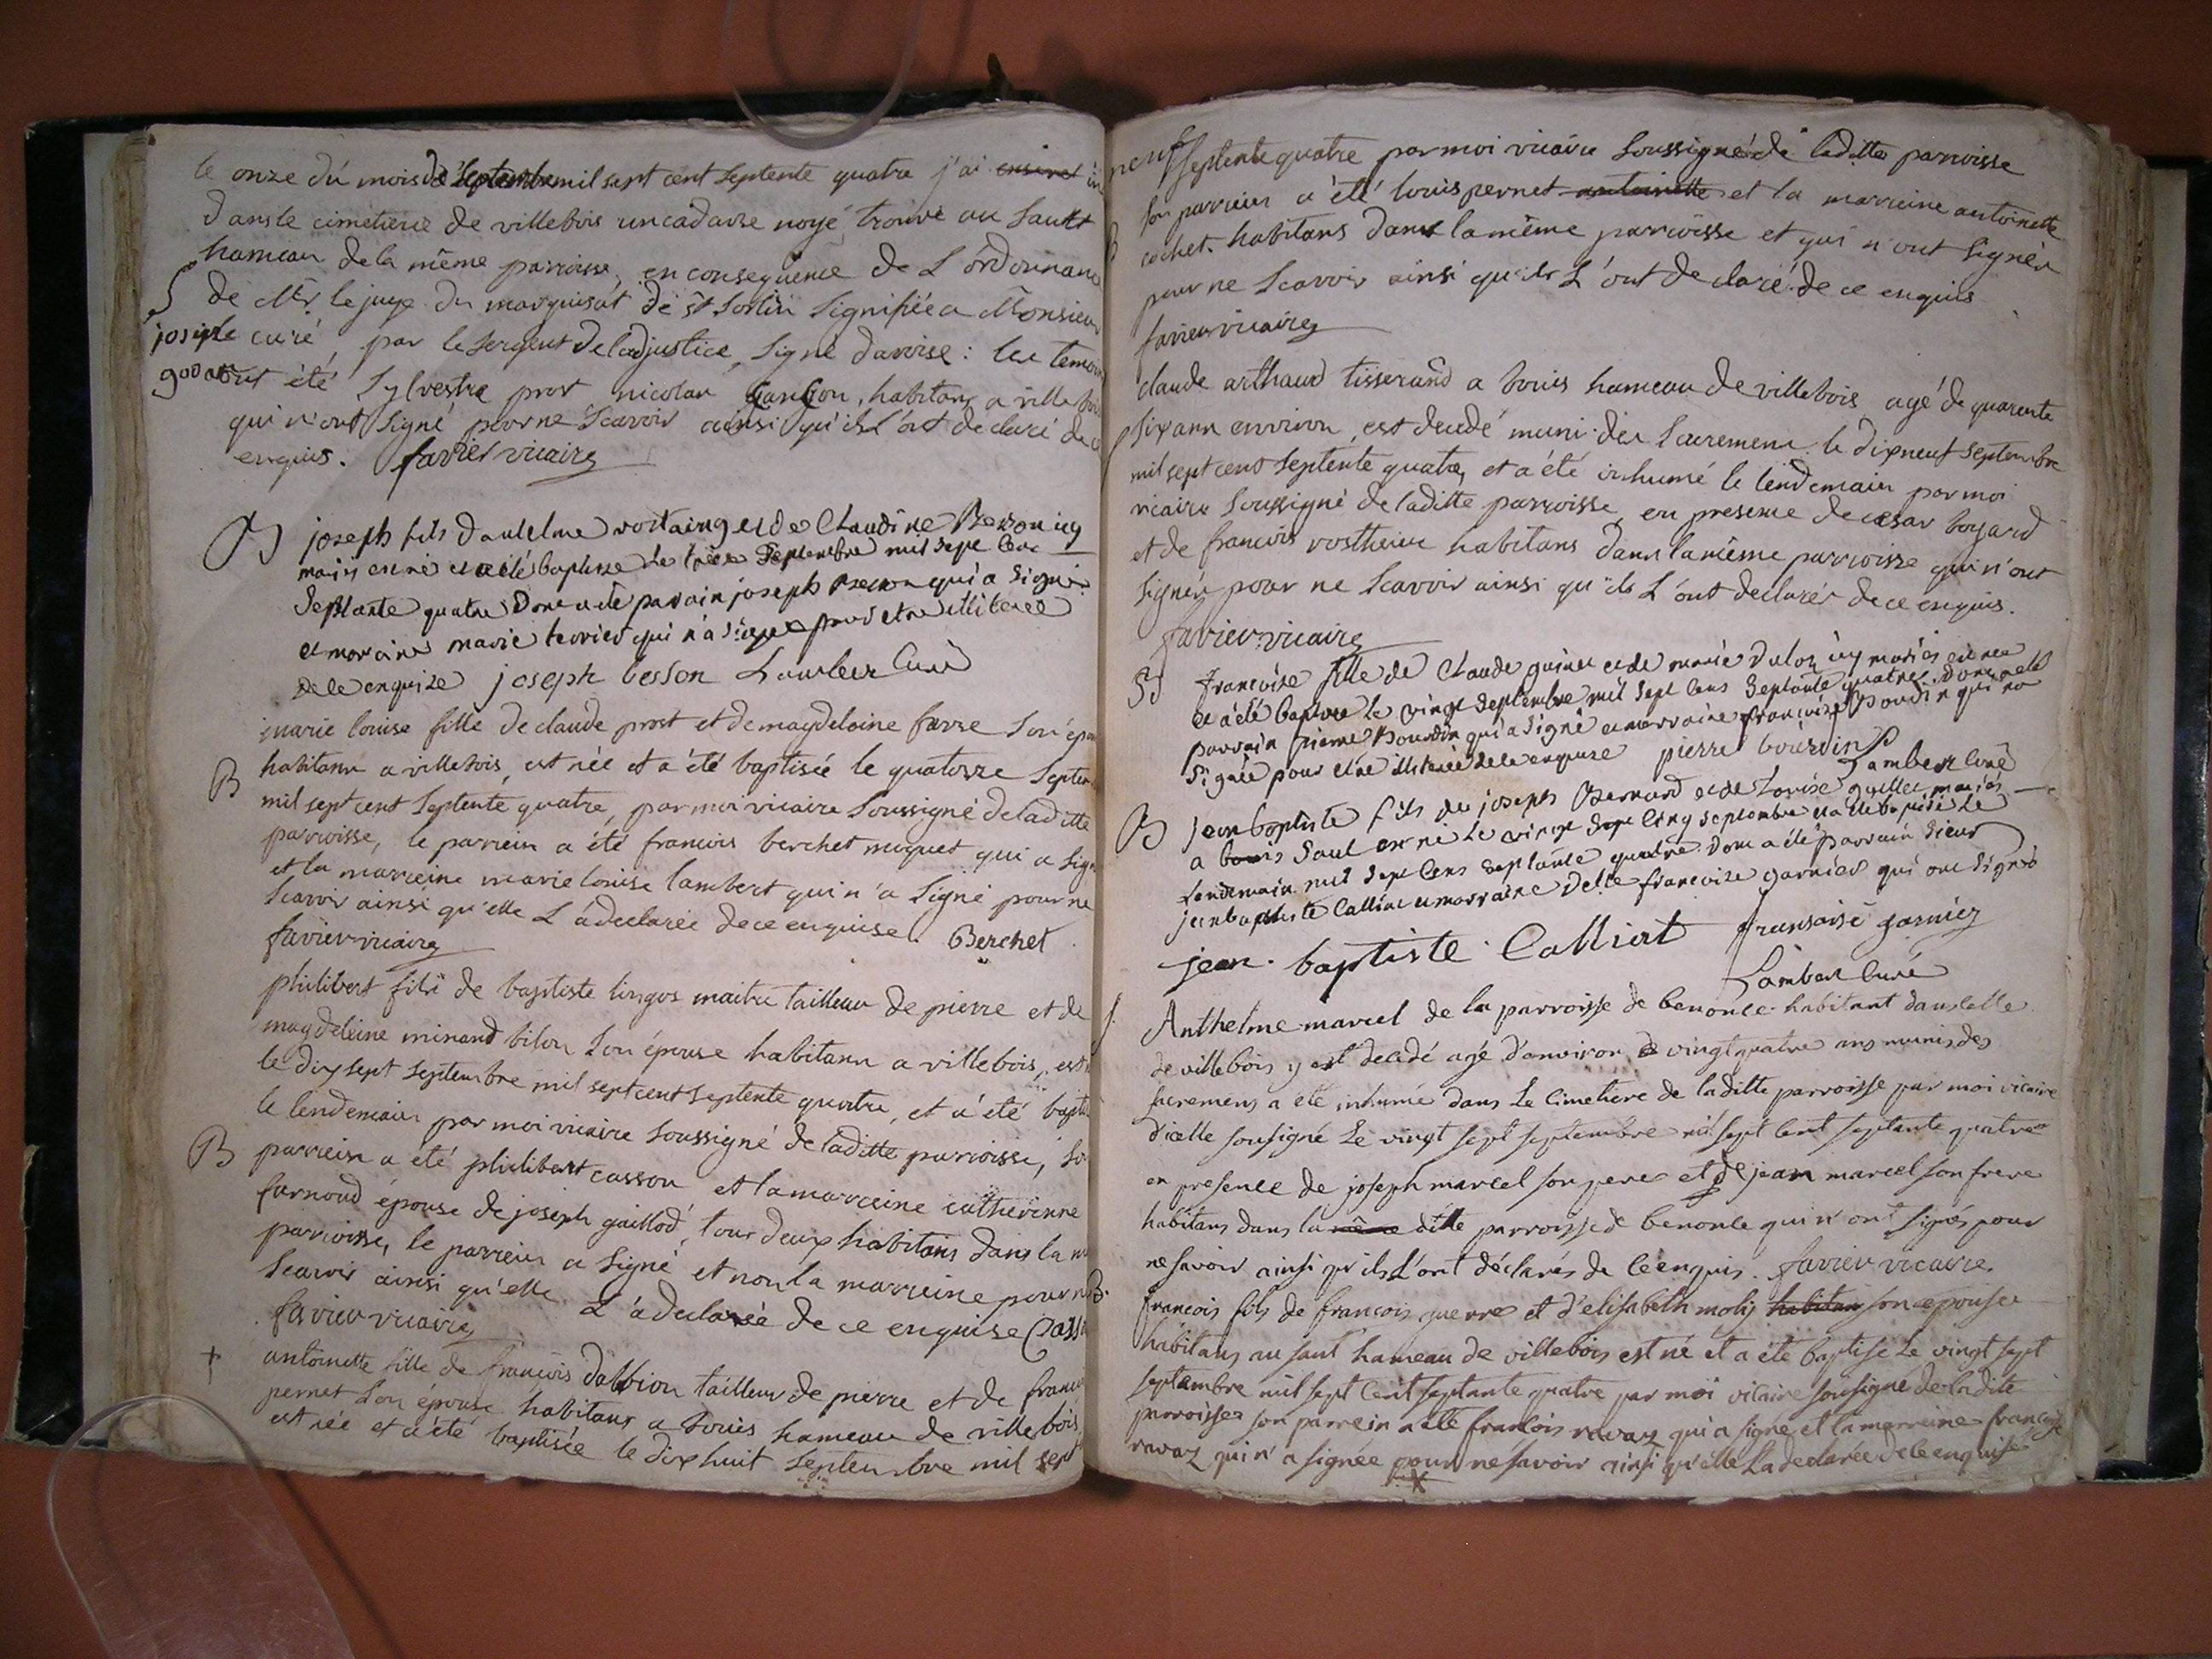 le onze dú mois de septembre mil sept cent septente quatre j'ai
dans le cimetiere de villebois un cadavre noyé, trouvé au Sault
hameau de la même parroisse, en consequence de L'ordonnance
de Mr le juge du marquisat de st Sorlin signifiée a Monsieur
joseph le curé, par le sergent de ladjustice, signé davoise: les temoins
ont été Sylvestre prost nicolas habitans a villebois
qui n'ont signé pour ne sçavoir ainsi qu'ils L'ont declaré de ce
enquis. favier vicaire
B joseph fils d'antelme et de Claudine
mariés est né et a été baptisé le septembre mil sept cent
septante quatre dont a été parrain joseph Besson qui a signé
et marraine marie qui n'a signé pour etre illiterée
de ce enquise joseph besson Lambert Curé
marie louise fille de claude prost et de magdelaine favre son épouse
B habitans a villebois, est née et a été baptisée le quatorze septembre
mil sept cent septente quatre, par moi vicaire soussigné de laditte
parroisse, le parrein a été francois berchet muquet qui a signé
et la marreine marie louise lambert qui n'a signé pour ne
scavoir ainsi qu'elle L'a declarée de ce enquise. Berchet
favier vicaire
philibert fils de baptiste lingos maitre tailleur de pierre et de
magdeleine minand bilon son épouse habitans a villebois, est
le dix sept septembre mil sept cent septente quatre, et a été
le lendemain par moi vicaire soussigné de laditte parroisse,
B parrein a été philibert casson et la marreine catherinne
farnoud épouse de joseph gaillod, tous deux habitans dans la
parroisse, le parrein a signé et non la marreine pour ne
scavoir ainsi qu'elle L'a declarée de ce enquise
favier vicaire
+ antoinette fille de françois dalbion tailleur de pierre et de
pernet son épouse habitans a bouis hameau de villebois,
est née et a été baptisée le dix huit septembre mil sept
septente quatre par moi vicaire soussigné de laditte parroisse
son parrein a été louis pernet antoinette et la marreine antoinette
cochet habitans dans la même parroisse et qui n'ont signés
pour ne scavoir ainsi qu'ils L'ont declaré de ce enquis
favier vicaire
claude arthaud tisserand a bouis hameau de villebois agé de quarente
six ans environ, est decedé muni des sacremens le dixneuf septembre
mil sept cent septente quatre, et a été inhumé le lendemain par moi
vicaire soussigné de laditte parroisse, en presence de cesar bozard
et de francois rostheins habitans dans la même parroisse qui n'ont
signés pour ne scavoir ainsi qu'ils L'ont declarés de ce enquis.
favier vicaire
B françoise fille de Claude et de marie mariés est née
et a été baptisée le vingt septembre mil sept cens septante quatre. Dont a été
parrain pierre Bourdin qui a signé et marraine françoise Bourdin qui n'a
signée pour etre illiterée de ce enquise pierre bourdin
Lambert Curé
B jean baptiste fils de joseph Bernard et de Louise mariés
a bouis Saul est né le vingt cinq septembre et a été baptisé le
lendemain mil sept cens septante quatre dont a été parrain sieur
jean baptiste Calliat et marraine Delle francoise Garnier qui ont signés
jean baptiste Calliat fransoise garnier
Lambert Curé
Anthelme marcel de la parroisse de benonce habitant dans celle
de villebois y est decedé agé d'environ vingt quatre ans munis des
sacremens a été inhumé dans le cimetiere de laditte parroisse par moi vicaire
d'icelle sousigné le vingt sept septembre mil sept cent septante quatre
en presence de joseph marcel son pere et de jean marcel son frere
habitans dans la même ditte parroisse de benonce qui n'ont signés pour
ne savoir ainsi qu'ils L'ont déclarés de ce enquis. favier vicaire.
B. francois fils de francois guerre et d'elisabeth moly habitans son epouse
habitans au saut hameau de villebois est né et a été baptisé le vingt sept
septembre mil sept cent septante quatre par moi vicaire sousigné de ladite
parroisse son parrein a été francois ravaz qui a signé et la marreine françoise
ravaz qui n'a signée pour ne savoir ainsi qu'elle La declarée de ce enquise